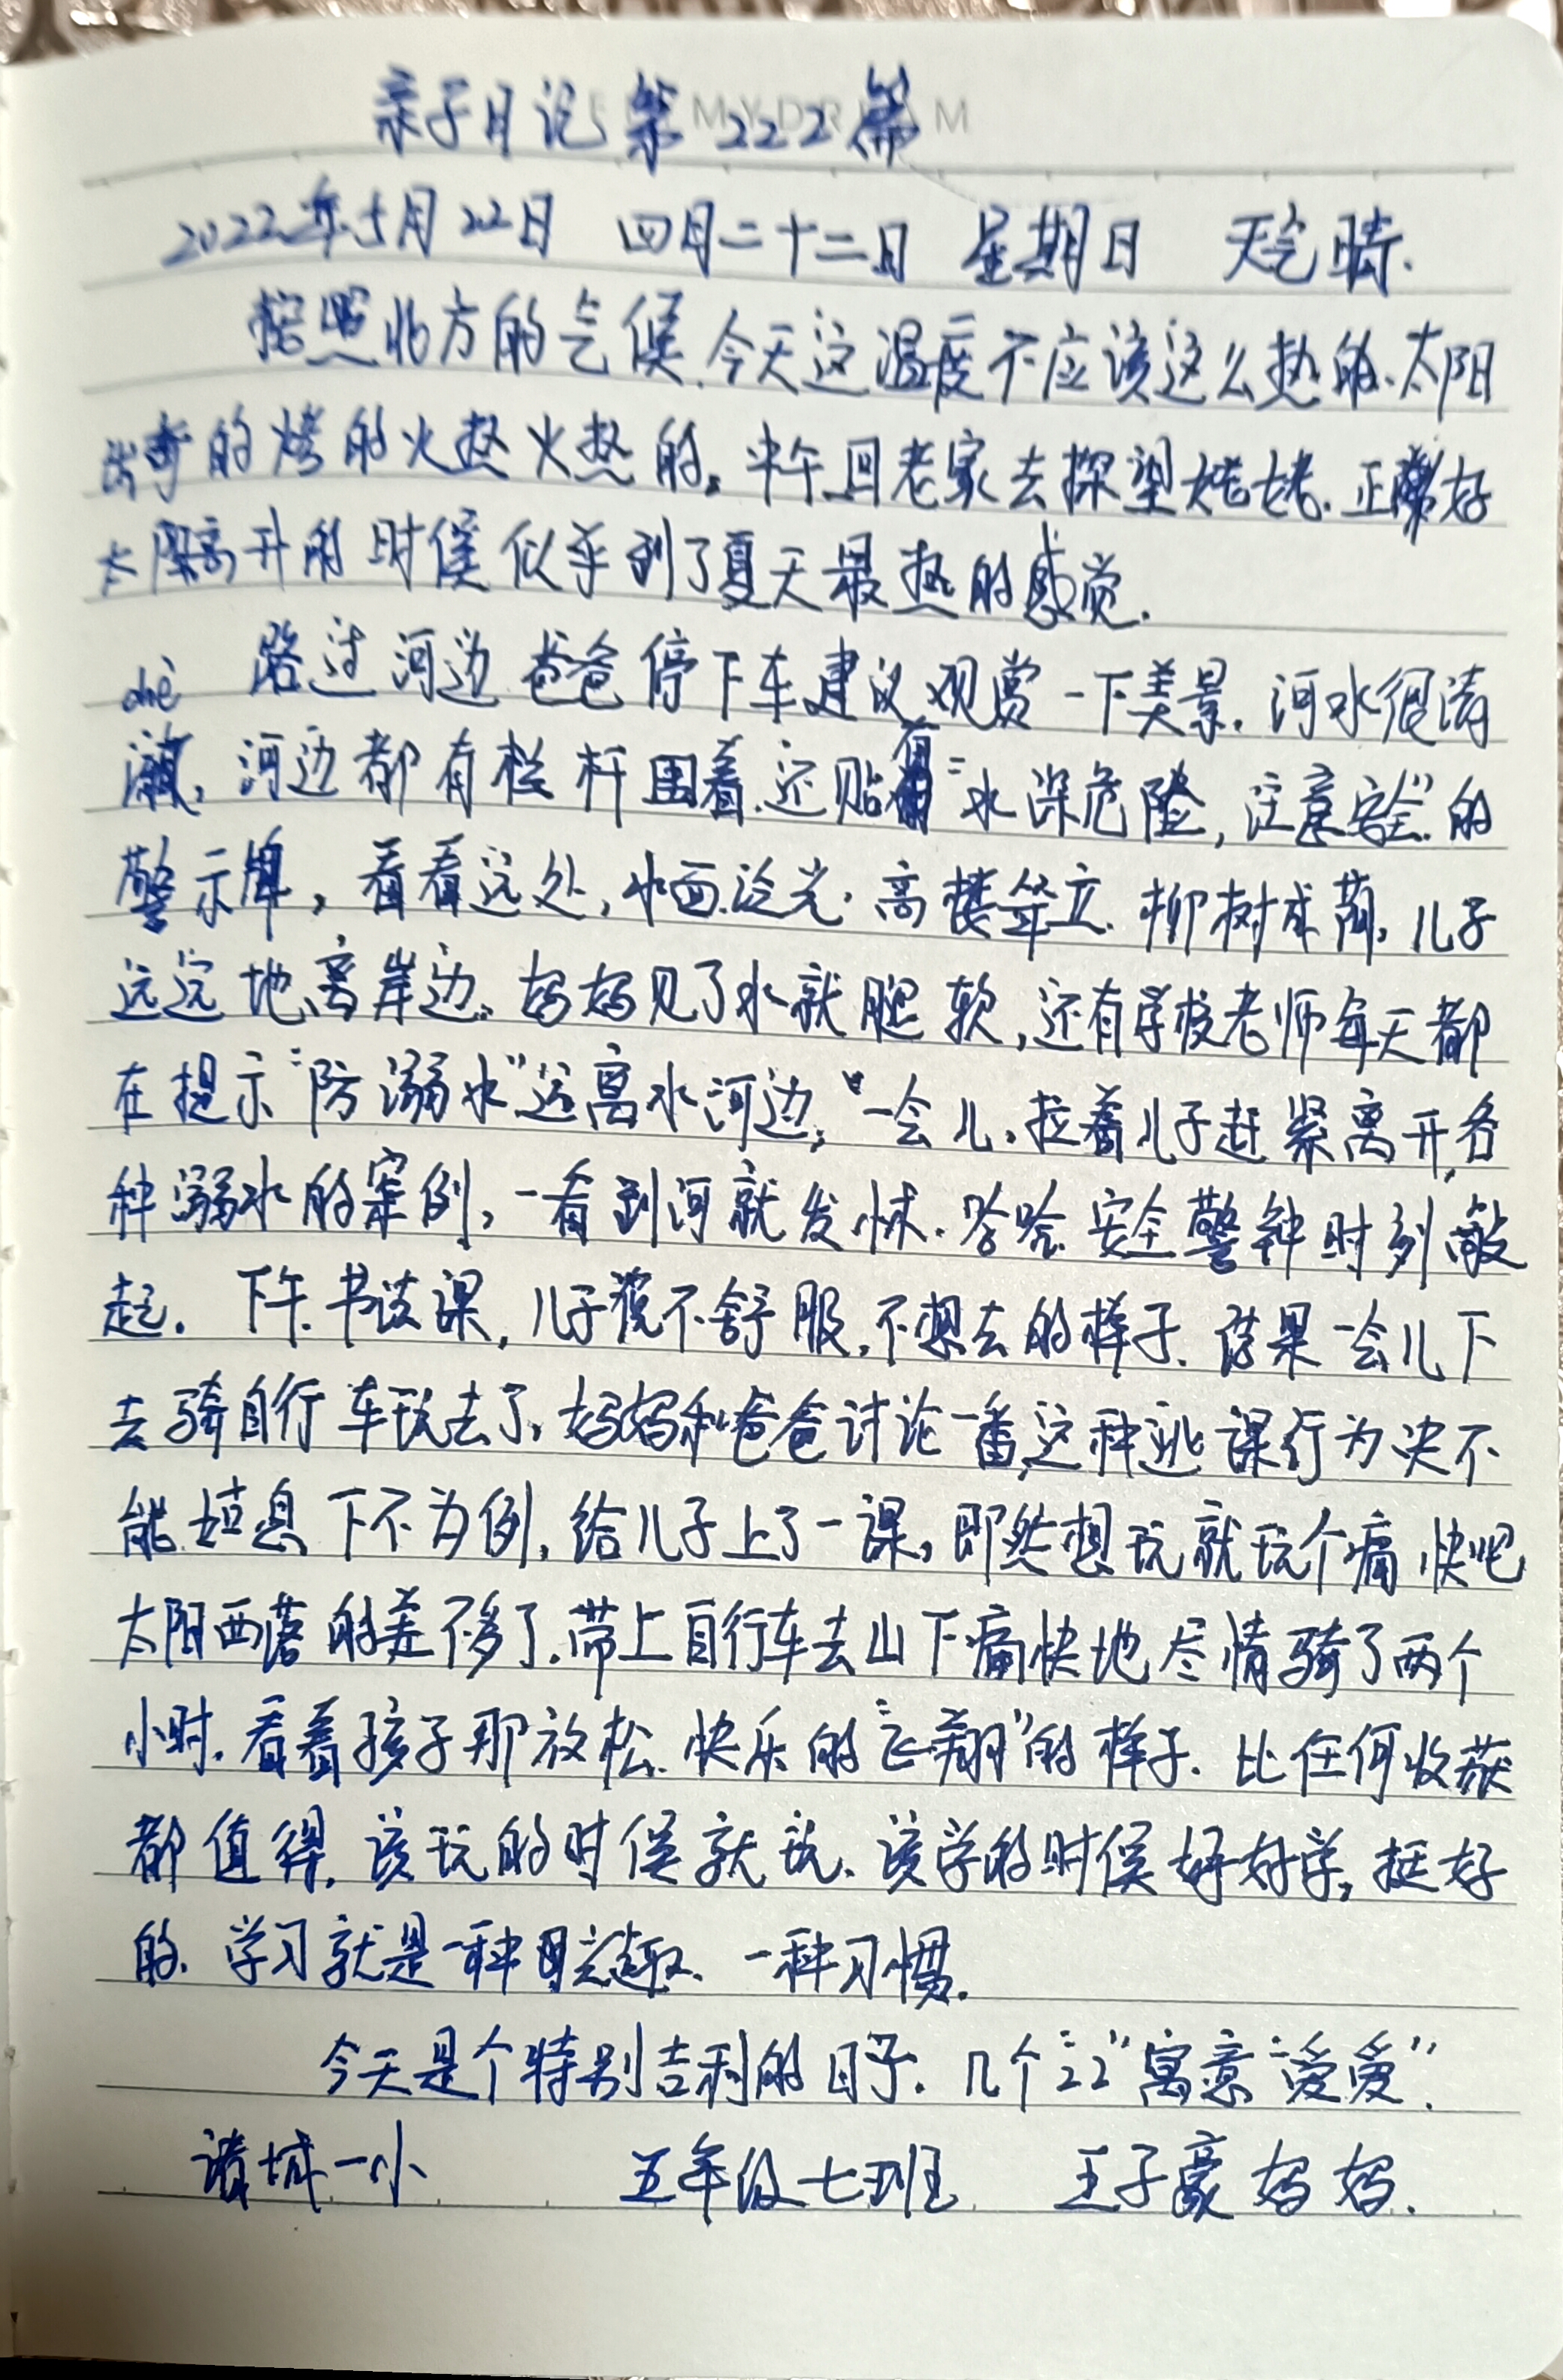 亲子日记第222篇
2022年5月22日 四月二十二日 星期日 天气晴.
按照北方的气候.今天这温度不应该这么热的.太阳
出奇的烤的火热火热的。中午回老家去探望姥姥.正好
太阳高升的时候似乎到了夏天最热的感觉.
路过河边爸爸停下车建议观赏一下美景.河水很清
chè
澈,河边都有栏杆围着.还贴有"水深危险,注意安全"的
警示牌,看看远处,水面泛光.高楼耸立.柳树成荫.儿子
远远地离岸边。妈妈见了水就腿软,还有学校老师每天都
在提示"防溺水"远离水河边,"一会儿.拉着儿子赶紧离开,各
种溺水的案例,一看到河就发怵.哈哈.安全警钟时刻敲
起. 下午.书法课,儿子说不舒服.不想去的样子.结果一会儿下
去骑自行车玩去了.妈妈和爸爸讨论一番,这种逃课行为决不
能姑息下不为例.给儿子上了一课,即然想玩就玩个痛快吧
太阳西落的差不多了.带上自行车去山下痛快地尽情骑了两个
小时.看着孩子那放松.快乐的"飞翔"的样子.比任何收获
都值得.该玩的时候就玩.该学的时候好好学,挺好
的.学习就是一种兴趣.一种习惯.
今天是个特别吉利的日子.几个"22"寓意"爱爱".
诸城一小 五年级七班 王子豪妈妈.